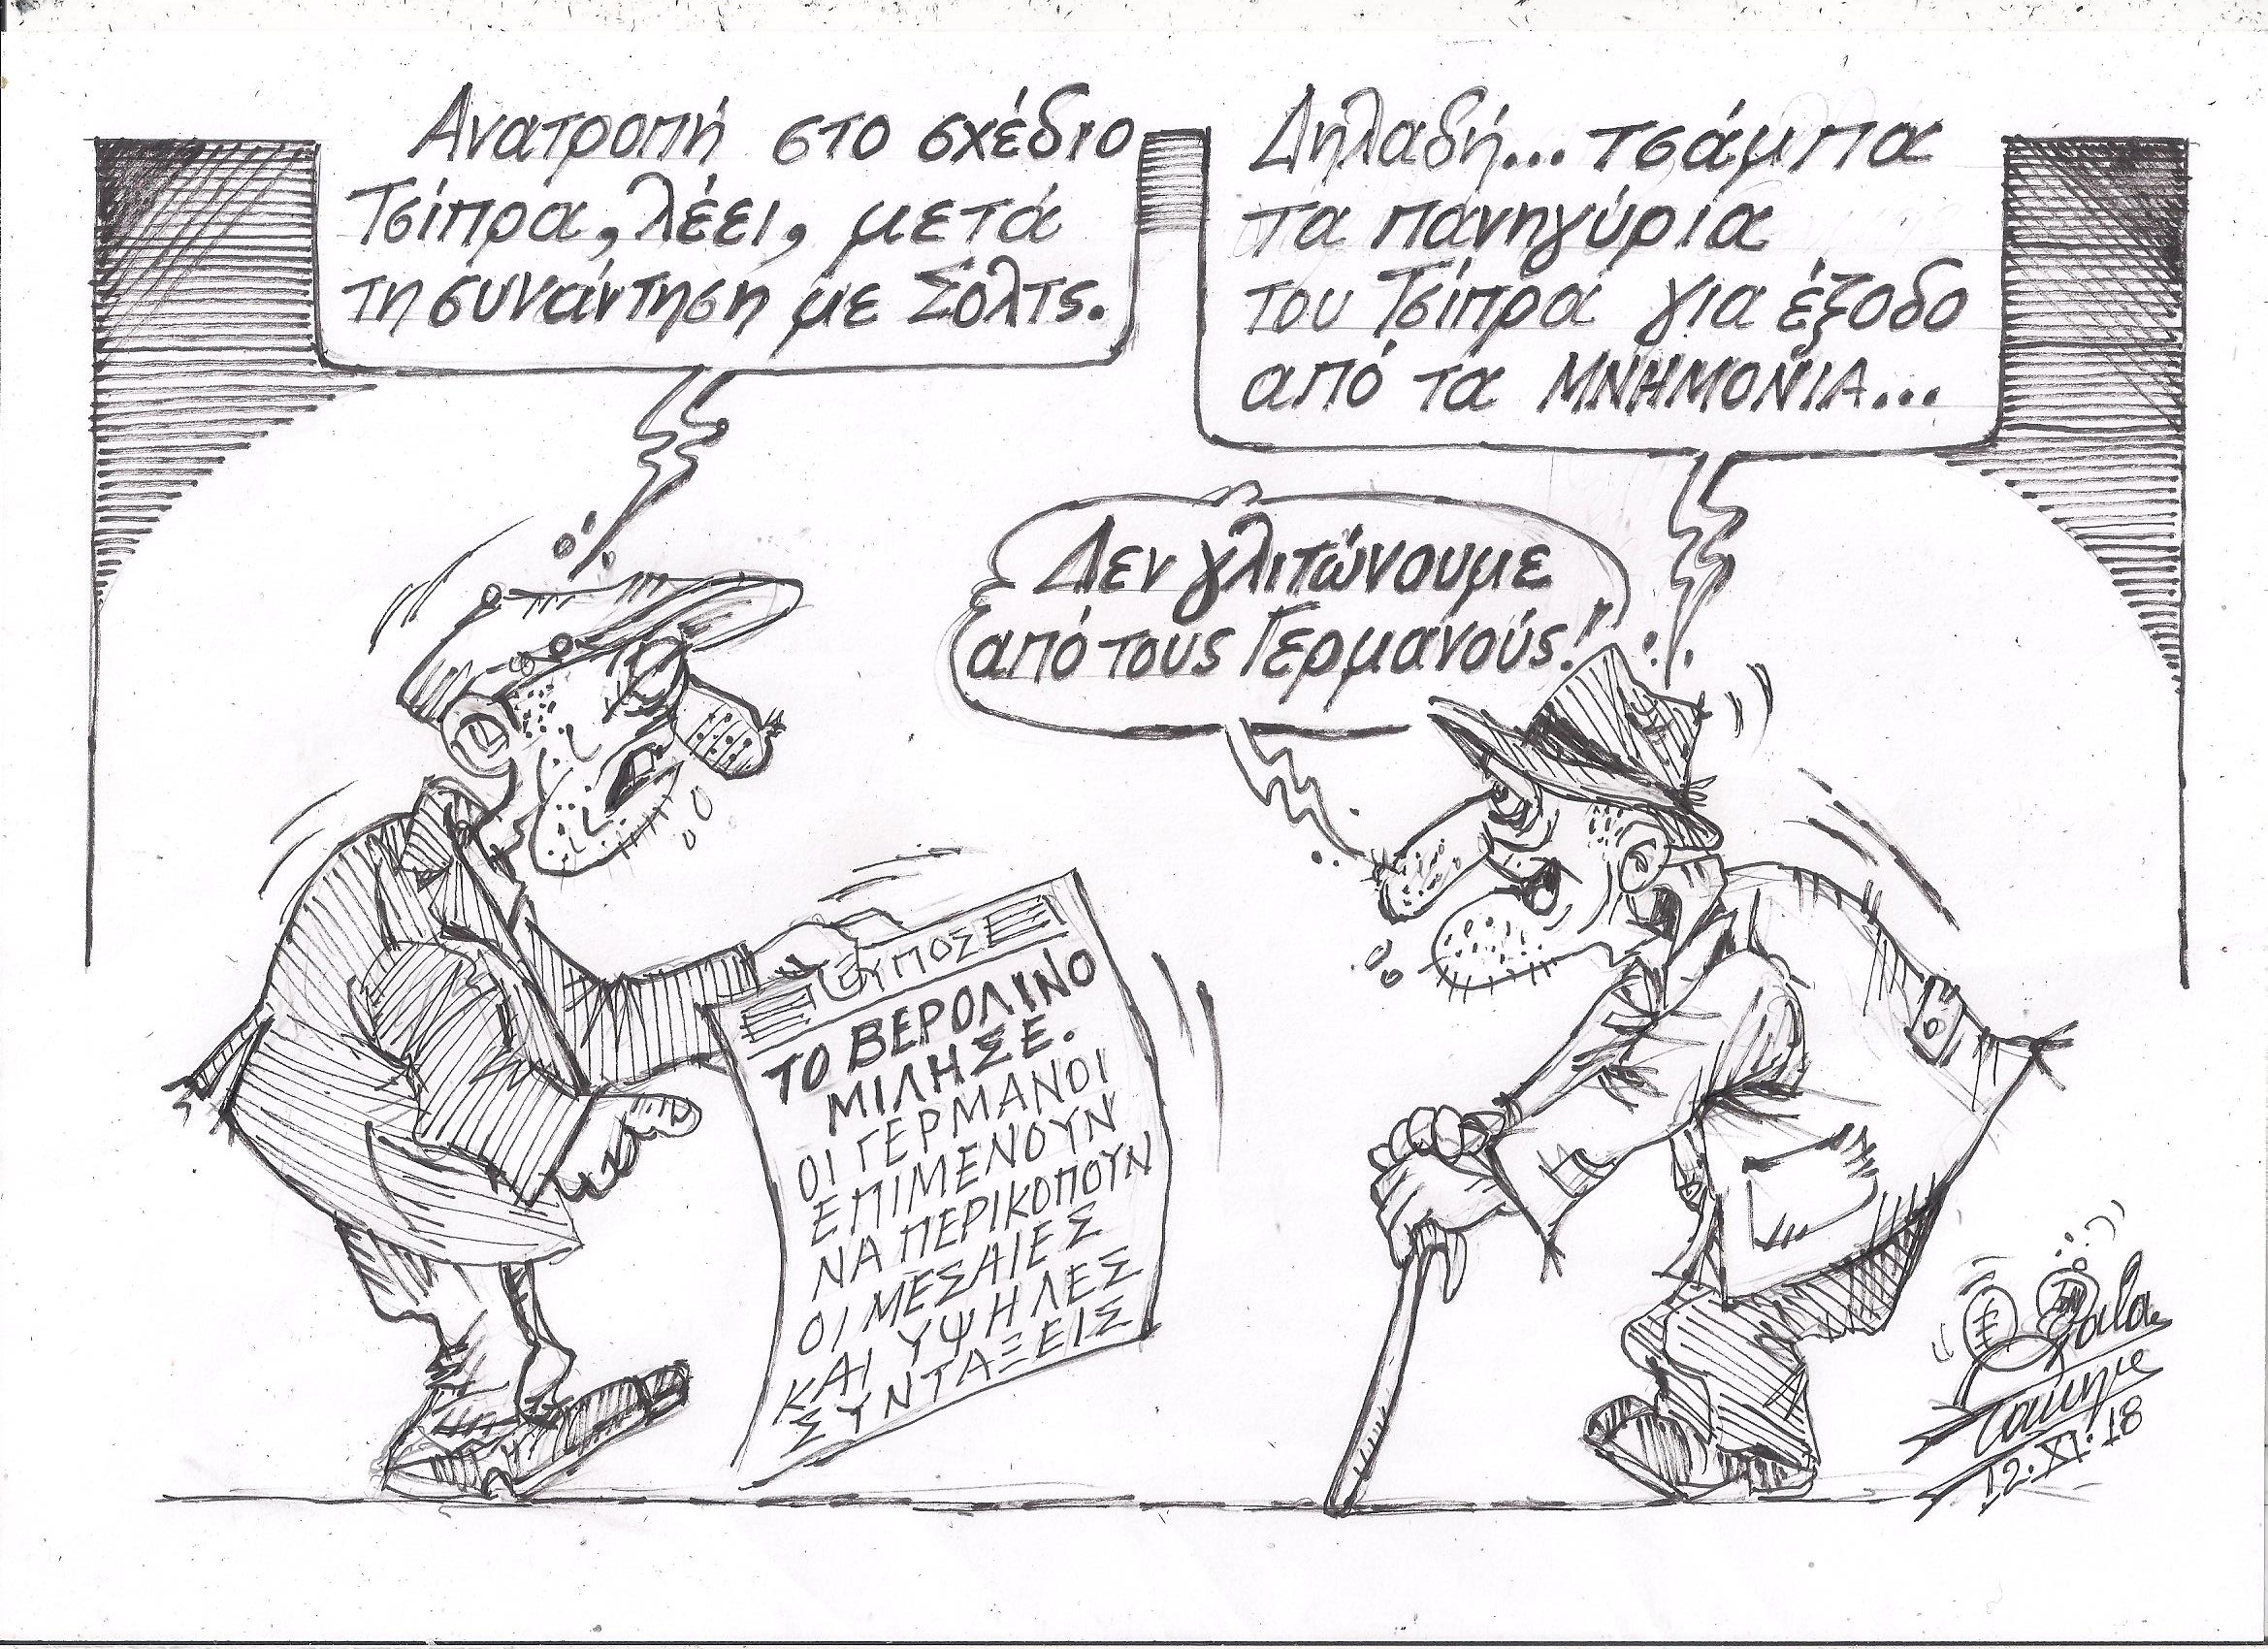 Ανατροπή στο σχέδιο
Τσίπρα, λέει, μετά
τη συνάντηση με Σόλτς.
Δηλαδή... τσάμπα
τα πανηγύρια
του Τσίπρα για έξοδο
από τα ΜΝΗΜΟΝΙΑ...
Δεν γλιτώνουμε
από τους Γερμανούς!
ΤΥΠΟΣ
ΤΟ ΒΕΡΟΛΙΝΟ
ΜΙΛΗΣΕ.
ΟΙ ΓΕΡΜΑΝΟΙ
ΕΠΙΜΕΝΟΥΝ
ΝΑ ΠΕΡΙΚΟΠΟΥΝ
ΟΙ ΜΕΣΑΙΕΣ
ΚΑΙ ΥΨΗΛΕΣ
ΣΥΝΤΑΞΕΙΣ
12.XI.18